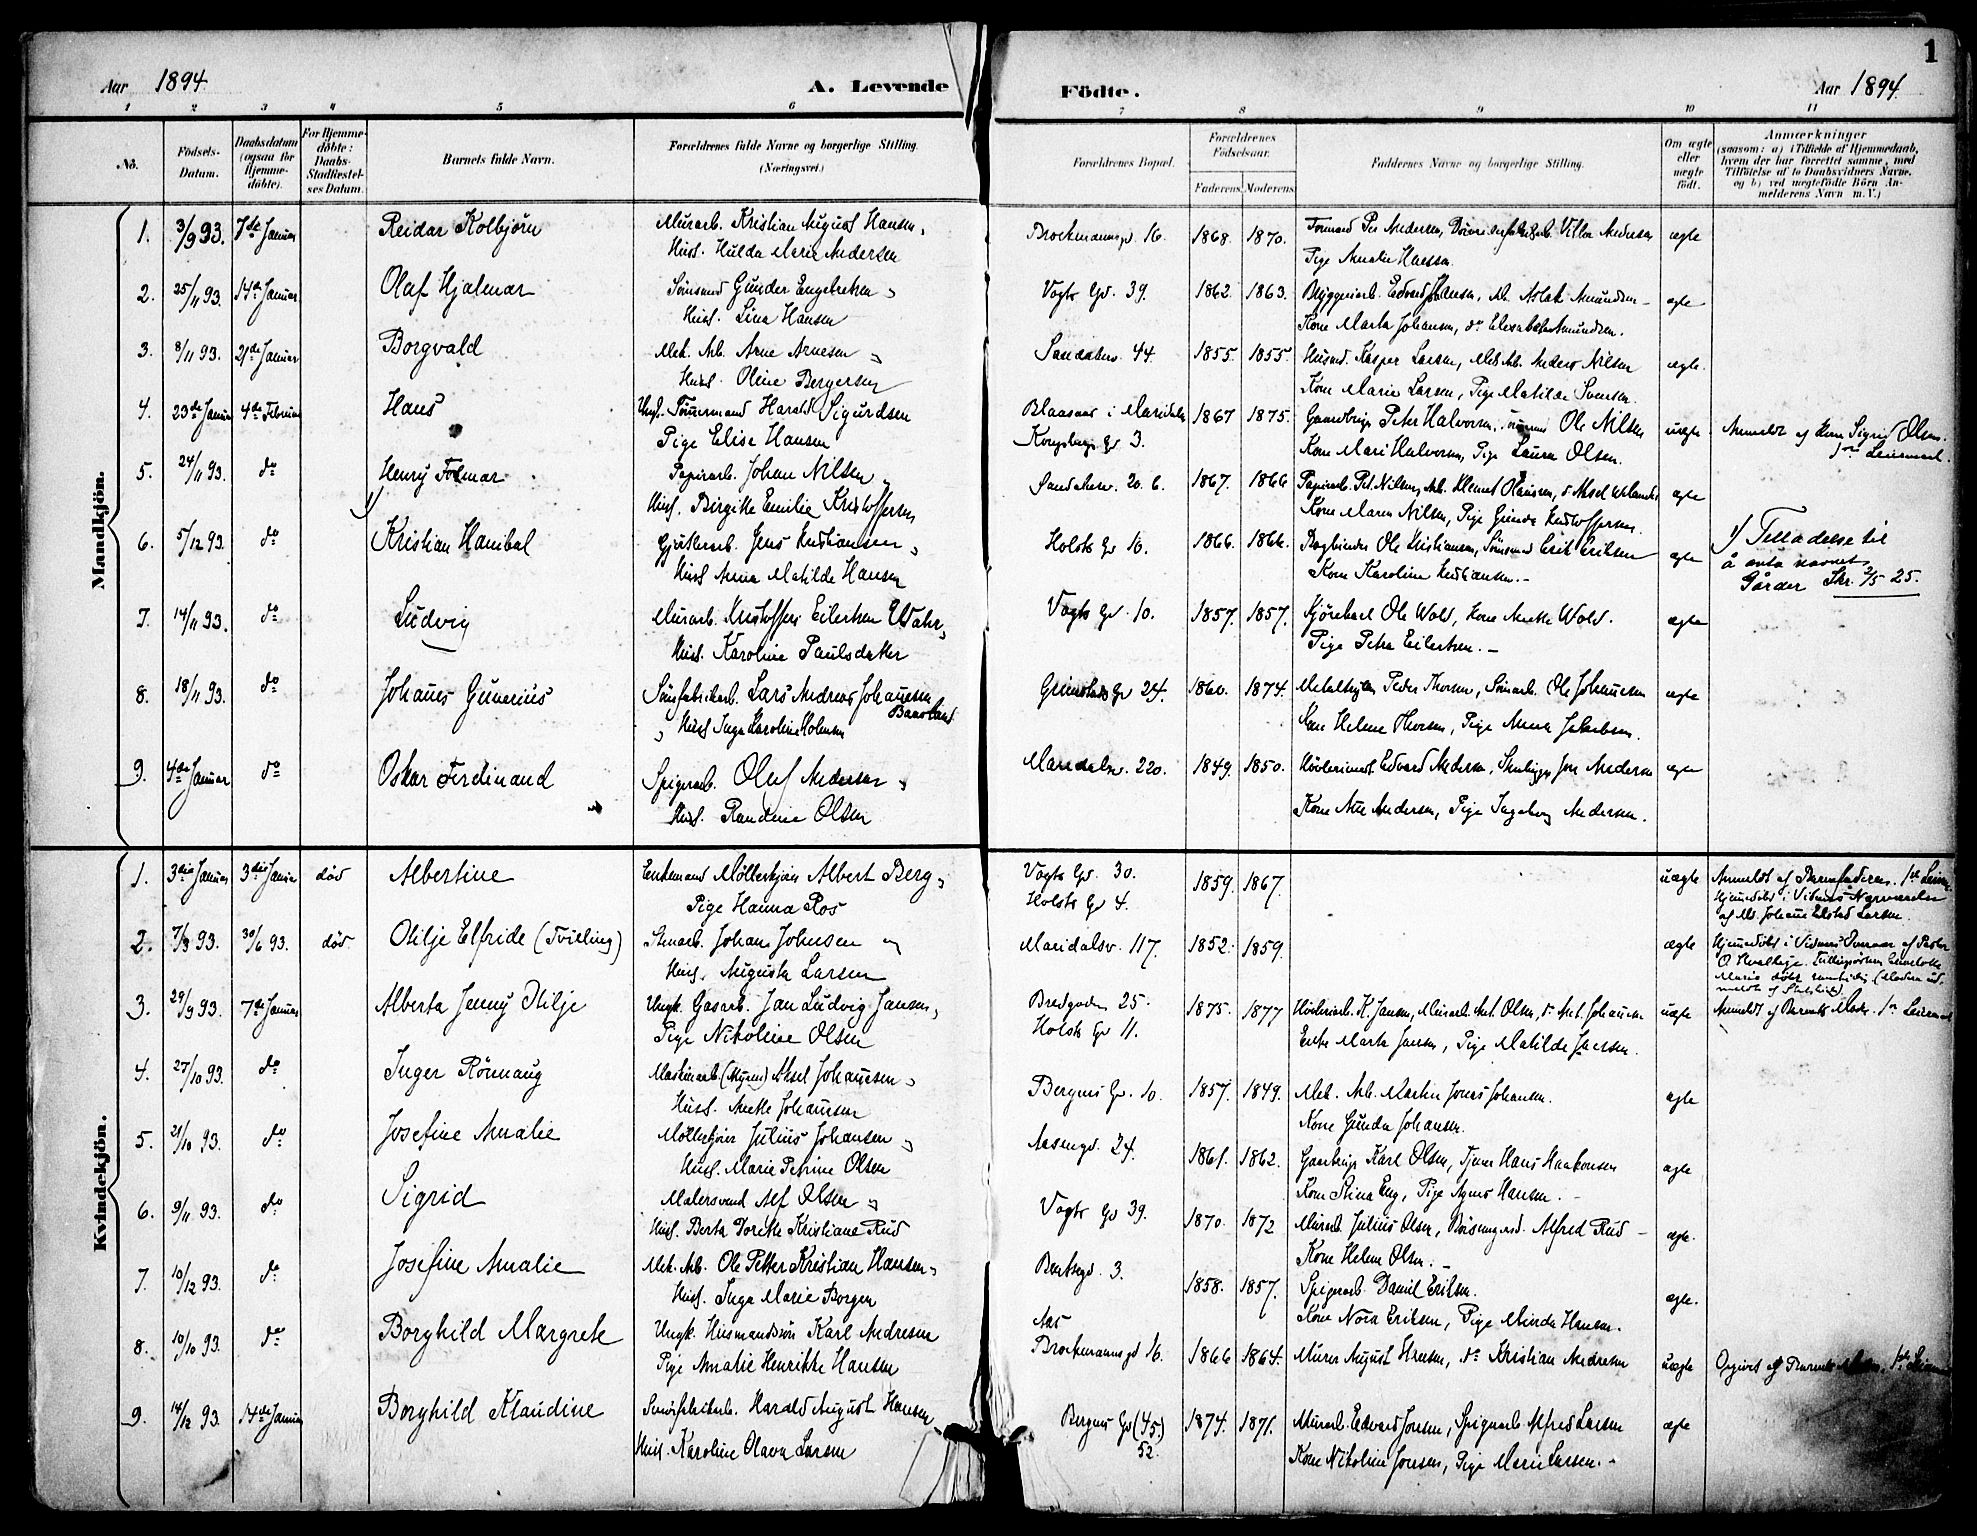 1
Aar 1894.
A. Levende Födte.
Aar 1894.
1 2 3 4 5 6 7 8 9 10 11
No.
Födsels-Datum.
Daabsdatum (ogsaa for Hjemme-döbte).
For Hjemme-döbte: Daabs-Stadfæstel-ses Datum.
Barnets fulde Navn.
Forældrenes fulde Navne og borgerlige Stilling. (Næringsvei.)
Forældrenes Bopæl.
Forældrenes Födselsaar.
Faderens. Moderens.
Faddernes Navne og borgerlige Stilling.
Om ægte eller uægte födt.
Anmærkninger
(saasom: a) i Tilfælde af Hjemmedaab, hvem der har forrettet samme, med Tilföielse af to Daabsvidners Navne, og b) ved uægtefödte Börn Anmelderens Navn m. V.)
Mandkjön.
1. 3/9 93. 7de Januar Reidar Kolbjörn Murarb. Kristian August Hansen, Brockmannsgd. 16. 1868. 1870. Formand Per Andersen, Andersen ægte
Hust. Hulda Marie Andersen Pige Amalie
2. 25/11 93. 14de Januar Olaf Hjalmar Gunder Engebretsen Vogts Gd. 39. 1862. 1863. Bryggeriarb. Edvard Hansen, Arb. Aslak Amundsen ægte
Hust. Lina Hansen Kone Marta Johansen, do Elisabeth Amundsen.
3. 8/11 93. 21de Januar Borgvald Mek. Arb. Arne Arnesen Sandakerv. 44. 1855. 1855. Husmd. Kasper Larsen, Mek. Arb. Anders Nilsen ægte.
Hust. Oline Bergersen Kone Marie Larsen, Pige Matilde Svensen.
4. 23de Januar 4de Februar Hans Ungk. Tömmermand Harald Sigurdsen Blaasaas i Maridalen 1867 1875. Gaardbruger Peter Halvorsen, Ole Nilsen uægte Anmeldt af Sigrid Olsen.
Pige Elise Hansen Kongsbergs Gd 3. Kone Mari Halvorsen, Pige Laura Olsen. 1ste Leiermaal.
5. 24/11 93. do Henry Folmar Papirarb. Johan Nilsen Sandakerv. 20. b. 1867. 1866 Papirarb. Nilsen, Arb. Klemet Olaussen, ægte
1) Hust. Birgitte Emilie Kristoffersen Kone Maren Nilsen, Pige Gunda Kristoffersen.
6. 5/12 93. do Kristian Hanibal Jens Kristiansen Holsts Gd 10. 1866. 1866. Bogbinder Ole Kristiansen, Erik Eriksen ægte 1) Tilladelse til
Hust Anna Matilde Hansen Kone Karoline Kristiansen. å anta navnet
Gårder Skr. 2/5 25.
7. 14/11 93. do Ludvig Murarb. Kristoffer Eilertsen Vogts Gd. 10. 1857. 1857. Kjörekarl Ole Wold, Kone Wold. ægte
Hust. Karoline Paulsdatter Pige Petra Eilertsen.
8. 18/11 93. do Johanes Gunerius Lars Andreas Johanesen Grimstads Gd 24. 1860. 1874. Peder Thorsen, Ole Johanesen ægte
Hust Inga Karoline Kone Helene Thorsen, Pige Anna Jakobsen.
9. 4de Januar do Oskar Ferdinand Spigerarb. Oluf Andersen Maridalsv. 220. 1849. 1850. Edvard Andersen, Andersen ægte
Hust. Randine Olsen Kone Andersen, Pige Ingeborg Andersen.
Kvindekjön.
1. 3die Januar 3die Januar död Albertine Enkemand Möllerkjörer Albert Berg, Vogts Gd. 30. 1859. 1867. uægte Anmeldt af Barnefaderen. 1ste
Pige Hanna Ros Holsts Gd 4. Hjemmedöbt i Vidners Nærværelse
af Johanne Larsen.
2. 7/3 93. 30/6 93. död Otilje Elfride (Tvilling) Johans Johnsen Maridalsv. 117. 1852. 1859. ægte Hjemmedöbt i Vidners af Pastor
Hust. Augusta Larsen
3. 29/9 93. 7de Januar Alberta Jenny Otilje Ungk. Gasarb. Jan Ludvig Jansen, Bredgaden 25. 1875. 1877 K. Jansen, Murarb. Ant. Olsen, uægte Anmeldt af Barnets Moder. 1ste Leiermaal
Pige Nikoline Olsen Holsts Gd 11. Enke Marta Jansen, Pige Matilde Jansen.
4. 27/10 93. do Inger Rönnaug Maskinarb. Aksel Johannesen Bergens Gd. 10. 1857. 1849. Mek. Arb. Martin Jonas Johansen. ægte
Hust. Johannesen Kone Gunda Johansen.
5. 21/10 93. do Josefine Amalie Möllerkjörer Julius Johansen Aasengd. 24. 1861. 1862. Karl Olsen, Tjener Hans Haakonsen ægte
Hust. Marie Petrine Olsen Kone Stina Eng, Pige Agnes Hansen.
6. 9/11 93. do Sigrid Malersvend Alf Olsen Vogts Gd 39. 1870. 1872 Murarb. Julius Olsen, Alfred Rud ægte.
Hust. Berta Dorette Kristiane Rud Kone Helene Olsen.
7. 10/12 93. do Josefine Amalie Mek. Arb. Ole Petter Kristian Hansen Bentsegd. 3. 1858. 1857. Spigerarb. Daniel Eriksen. ægte.
Hust. Inga Marie Borgen Kone Nora Eriksen, Pige Minda Hansen.
8. 10/10 93. do Borghild Margrete Ungk. Husmandssön Karl Andresen Aas 1866 1864. Murer August Hansen, do Kristian Andresen uægte Opgivet af Barnets Moder.
Pige Amalie Henrikke Hansen Brockmannsgd 16.
9. 14/12 93. 14de Januar Borghild Klaudine Harald August Hansen Bergens Gd (45.) 52. 1874. 1871. Murarb. Edvard Jonsen, Spigerarb. Alfred Larsen ægte
Hust. Karoline Olava Larsen Kone Nikoline Jonsen, Pige Marie Larsen.